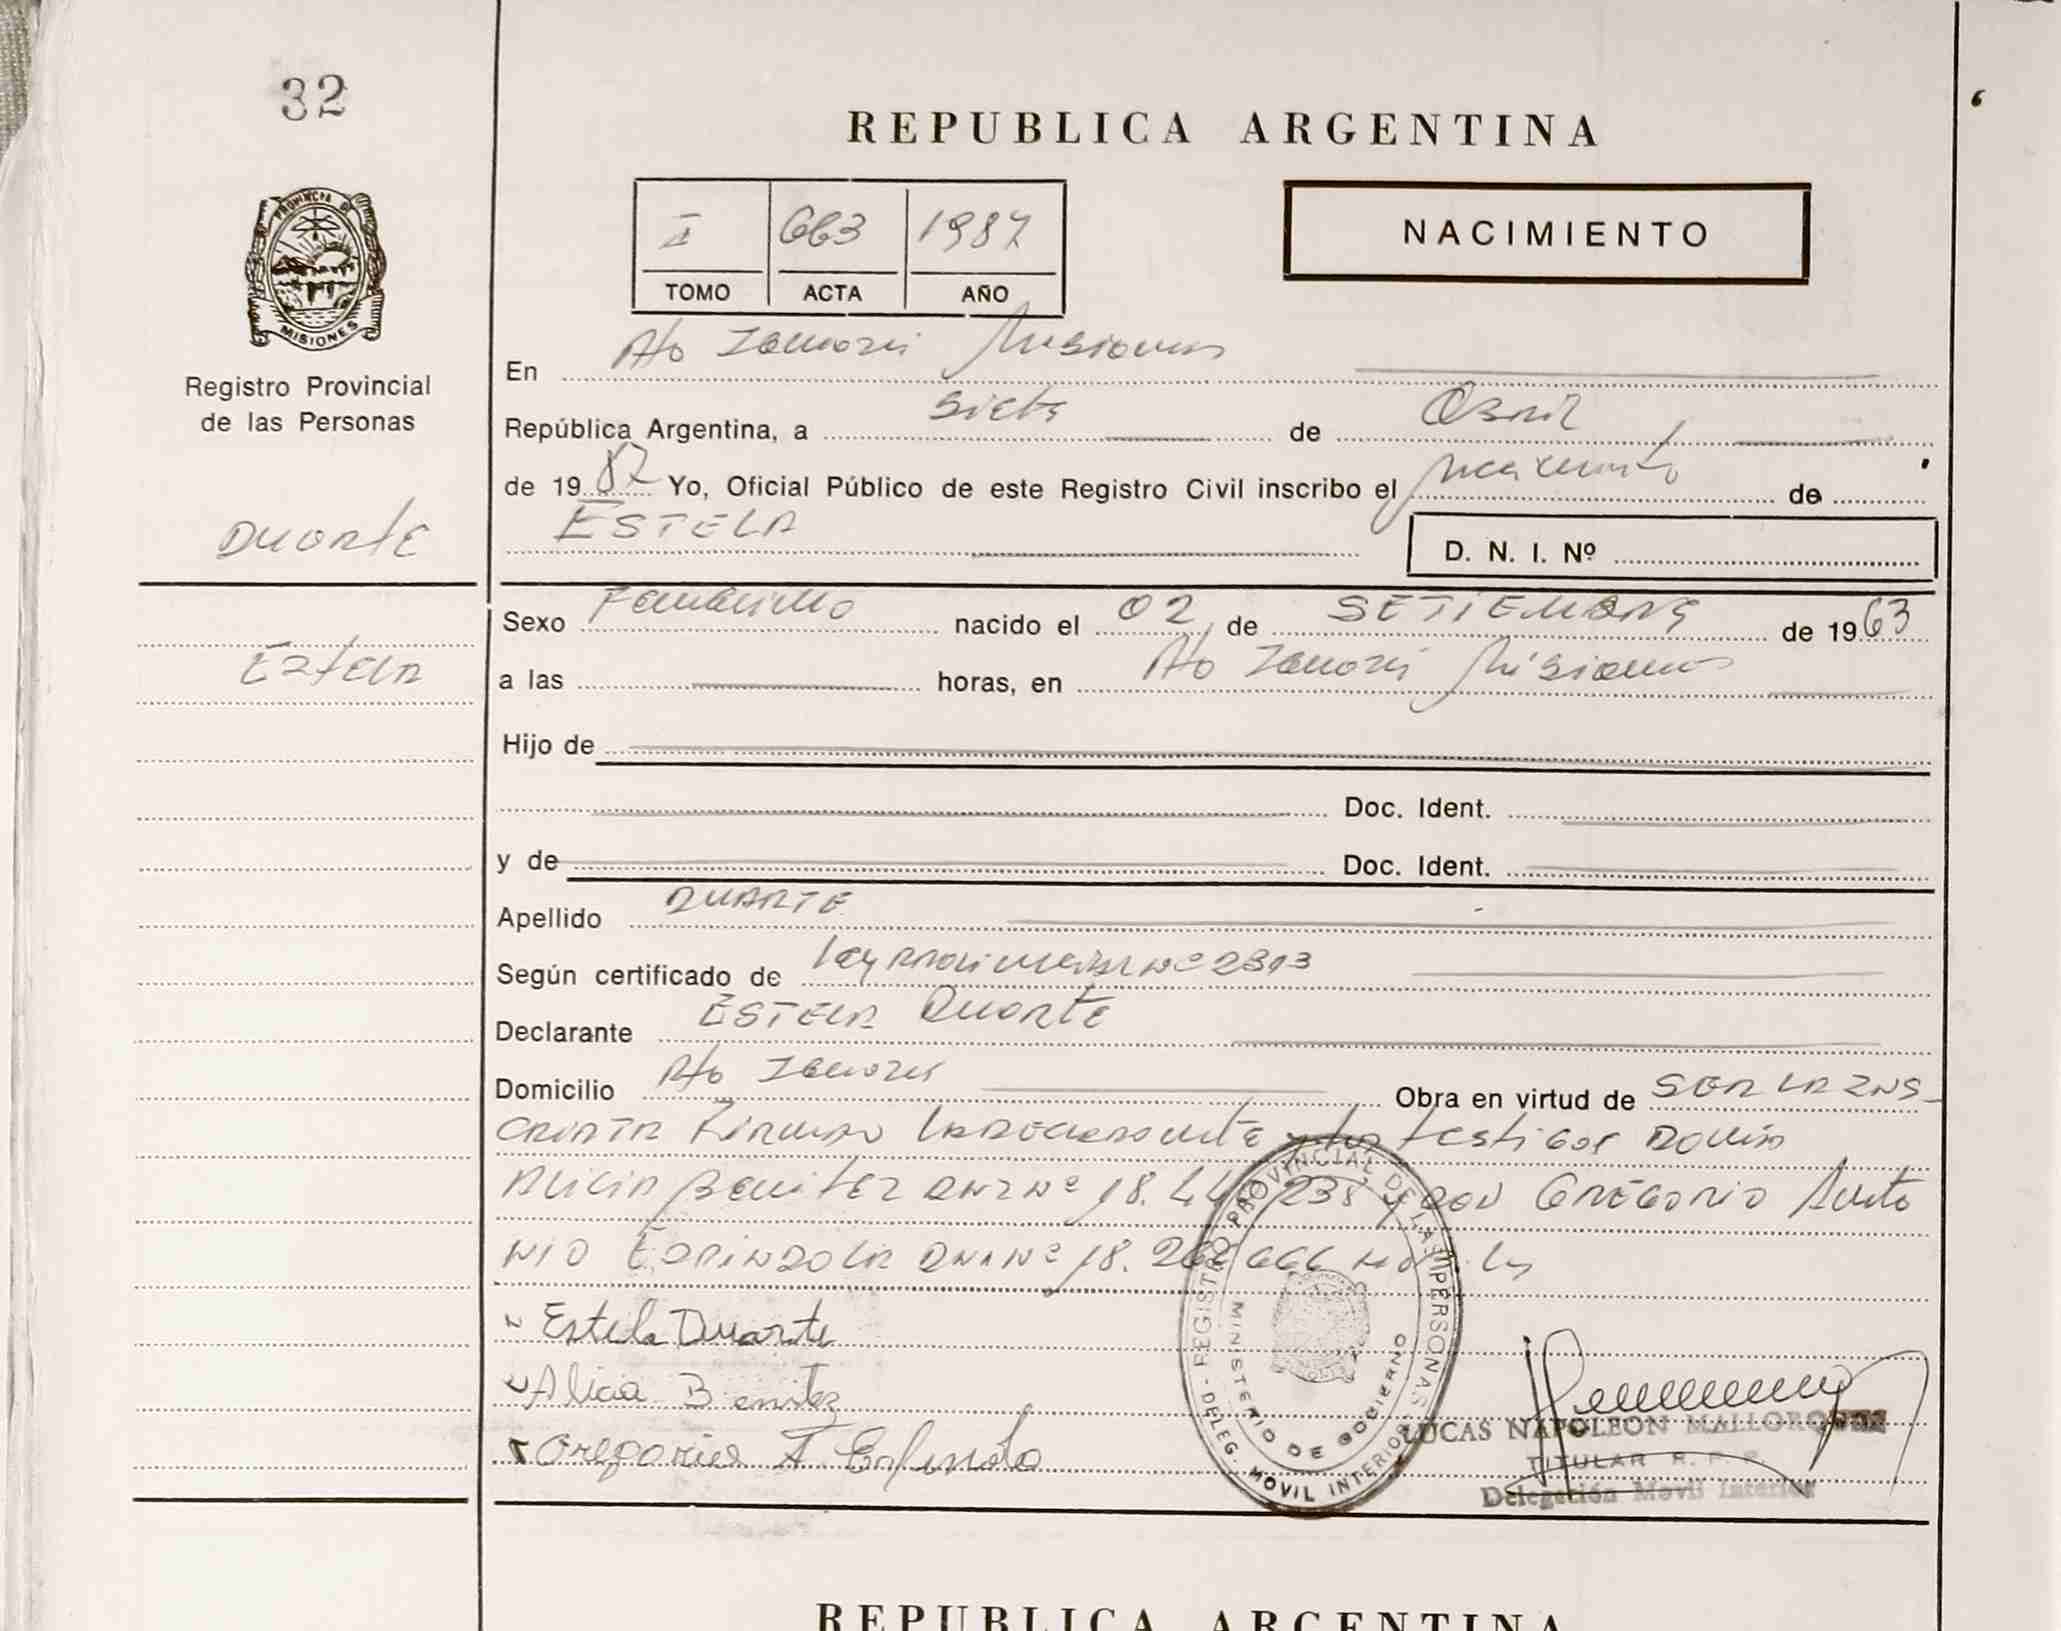 32
REPUBLICA ARGENTINA
I 663 1987
NACIMIENTO
TOMO ACTA AÑO
PROVINCIA DE MISIONES
Registro Provincial
de las Personas
En Misiones
República Argentina, a Siete de Abril
de 1987 Yo, Oficial Público de este Registro Civil inscribo el nacimiento de
Duarte
ESTELA
D. N. I. Nº
Sexo Femenino nacido el 02 de SETIEMBRE de 1963
Estela
a las horas, en Misiones
Hijo de
Doc. Ident.
y de Doc. Ident.
Apellido DUARTE
Según certificado de Ley Provincial Nº
Declarante ESTELA Duarte
Domicilio Obra en virtud de SER LA INS_
CRIPTA Firman la declarante y los testigos Doña
Alicia Benitez DNI Nº 18. 238 y Don GREGORIO Anto
NIO ESPINDOLA DNI Nº 18. 666
Estela Duarte
Alicia Benitez
Gregorio A Espindola
REGISTRO PROVINCIAL DE LAS PERSONAS - DELEG. MOVIL INTERIOR
MINISTERIO DE GOBIERNO
LUCAS NAPOLEON MALLORQUIN
TITULAR R. P. P.
Delegación Movil Interior
REPUBLICA ARGENTINA